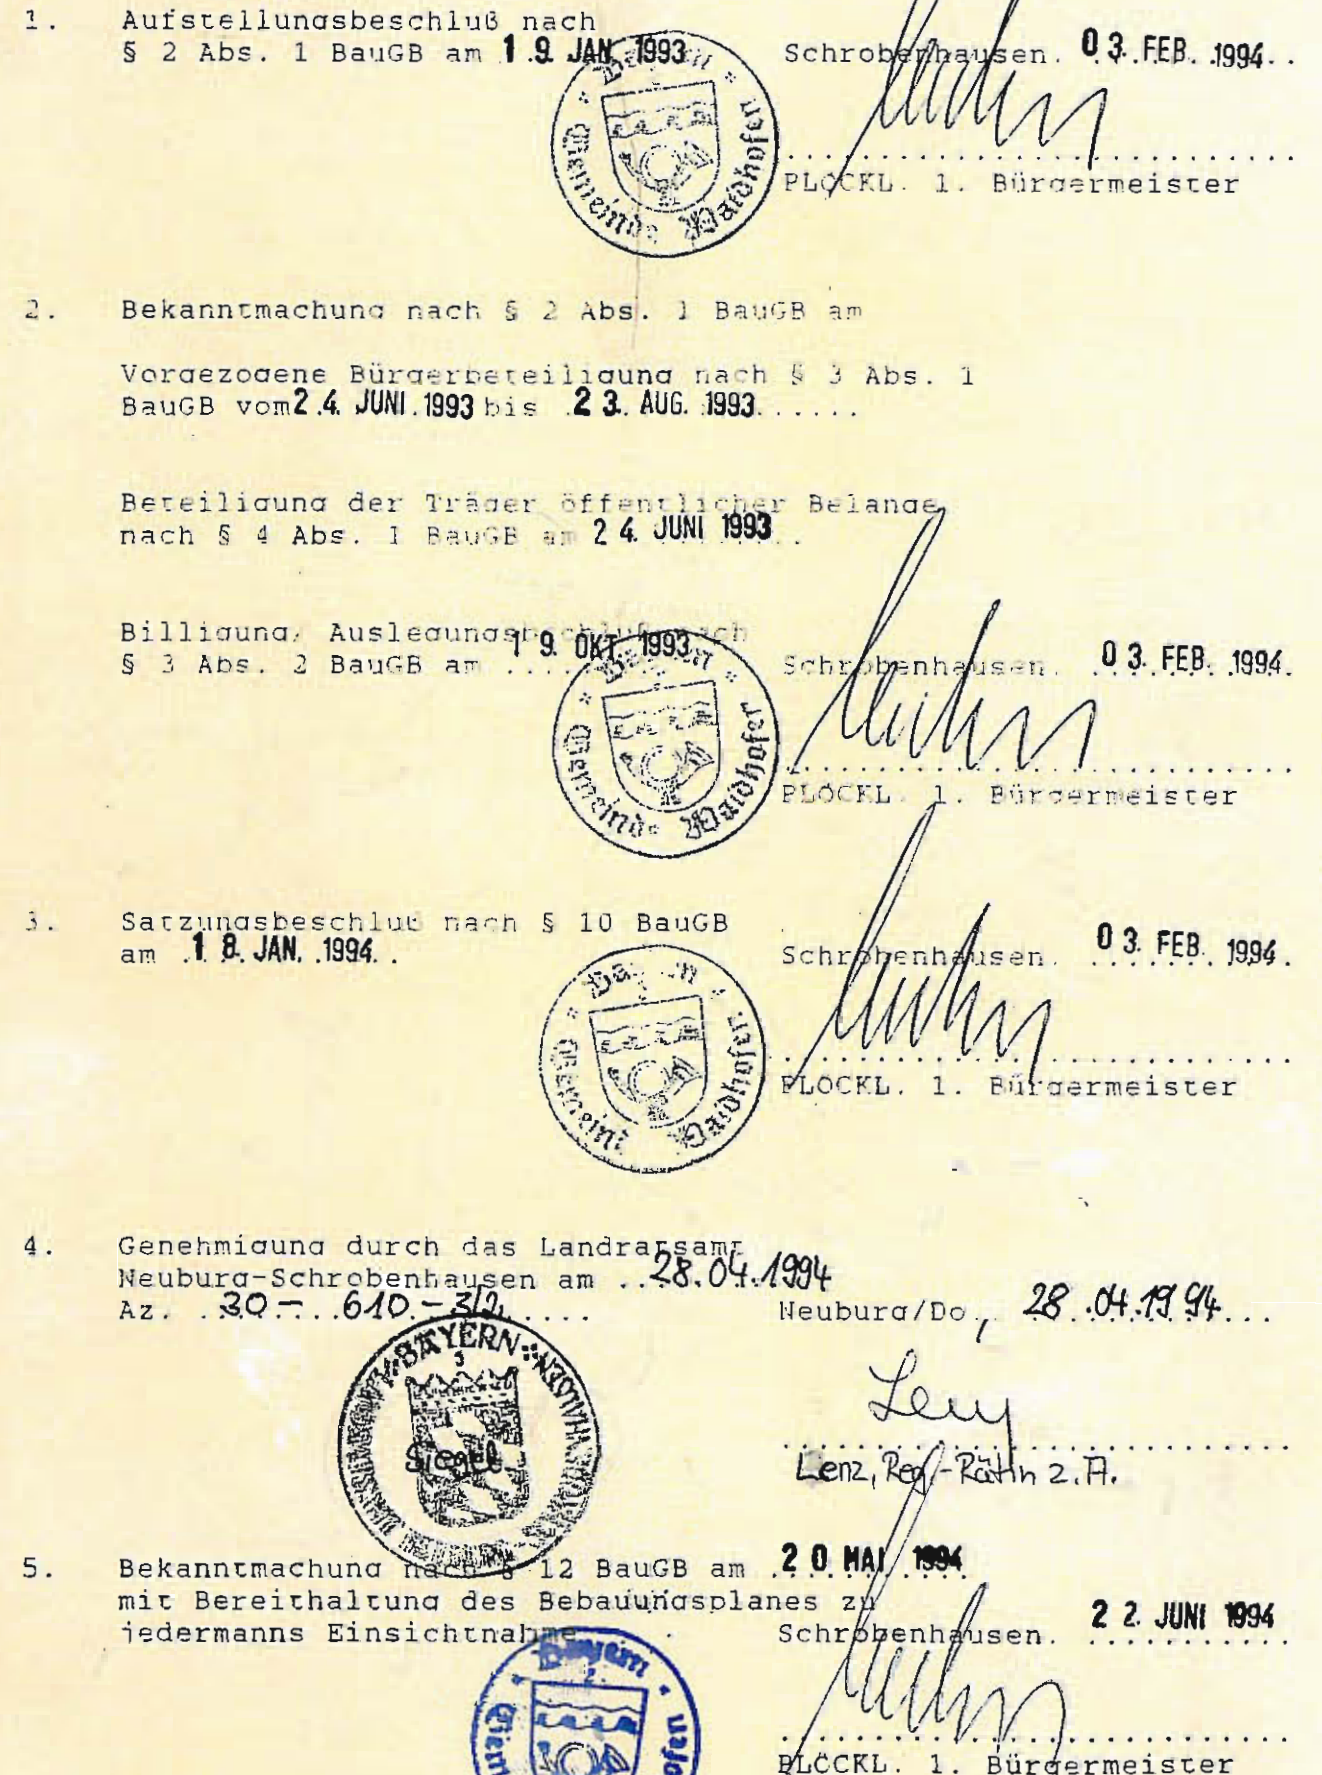 1. Aufstellungsbeschluß nach
§ 2 Abs. 1 BauGB am 19. JAN. 1993
Schrobenhausen. 03. FEB. 1994..
Bayern
Gemeinde Waidhofen
PLÖCKL. 1. Bürgermeister
2. Bekanntmachung nach § 2 Abs. 1 BauGB am
Vorgezogene Bürgerbeteiligung nach § 3 Abs. 1
BauGB vom 24. JUNI. 1993 bis .23. AUG. 1993......
Beteiligung der Träger öffentlicher Belange
nach § 4 Abs. 1 BauGB am 24. JUNI 1993..
Billigung, Auslegungsbeschluß nach
§ 3 Abs. 2 BauGB am 19. OKT. 1993
Schrobenhausen. 03. FEB. 1994.
Bayern
Gemeinde Waidhofen
PLÖCKL. 1. Bürgermeister
3. Satzungsbeschluß nach § 10 BauGB
am .18. JAN. .1994..
Schrobenhausen. 03. FEB. 1994.
Bayern
Gemeinde Waidhofen
PLÖCKL. 1. Bürgermeister
4. Genehmigung durch das Landratsamt
Neuburg-Schrobenhausen am ..28.04.1994
Az. .30-...610-3/2.....
Neuburg/Do., 28.04.1994...
BAYERN
Siegel
Lenz, Reg.-Rätin z.A.
5. Bekanntmachung nach § 12 BauGB am .20. MAI 1994
mit Bereithaltung des Bebauungsplanes zu
jedermanns Einsichtnahme
Schrobenhausen. 22. JUNI 1994
Bayern
2.
PLÖCKL. 1. Bürgermeister